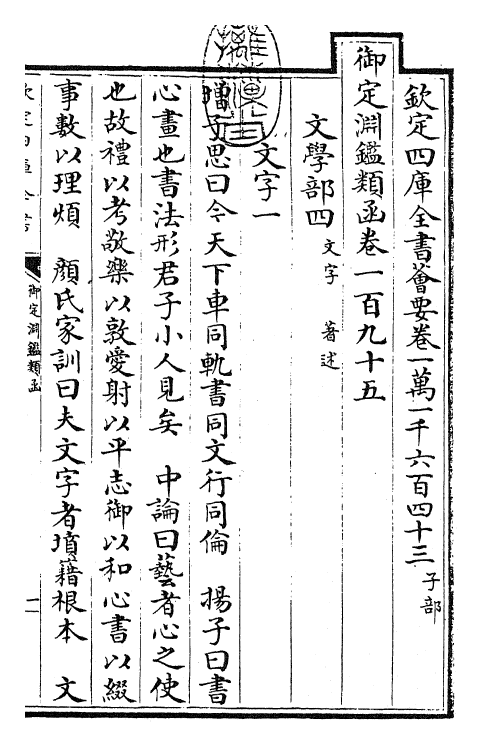 欽定四庫全書薈要卷一萬一千六百四十三 子部
御定淵鑑類函卷一百九十五
文學部四 文字 著述
文字一
增子思曰今天下車同軌書同文行同倫 揚子曰書
心畫也書法形君子小人見矣 中論曰藝者心之使
也故禮以考敬樂以敦愛射以平志御以和心書以綴
事數以理煩 顔氏家訓曰夫文字者墳籍根本 文
御定淵鑑類函
一